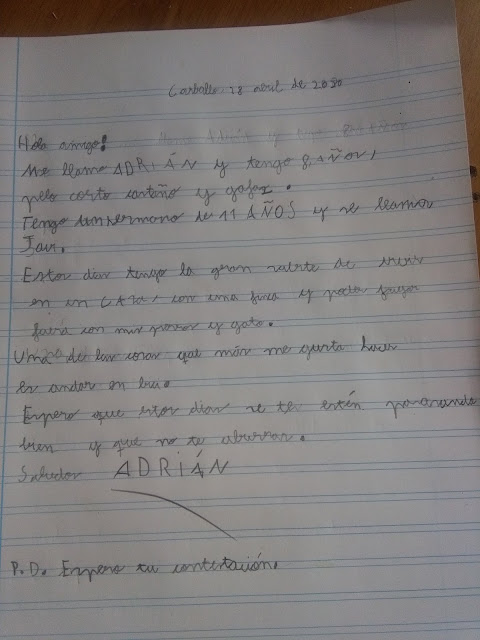 Carballo 28 abril de 2020
Hola amigo!
Me llamo ADRIÁN y tengo 8 AÑOS,
pelo corto castaño y gafas.
Tengo un hermano de 11 AÑOS y se llama
Estos dias tengo la gran suerte de vivir
en un CASA, con una finca y poder jugar
fuera con mis perros y gato.
Una de las cosas que más me gusta hacer
es andar en bici.
Espero que estos dias se te estén pasando
bien y que no te aburras.
Saludos ADRIÁN
P.D. Espero tu contestación.